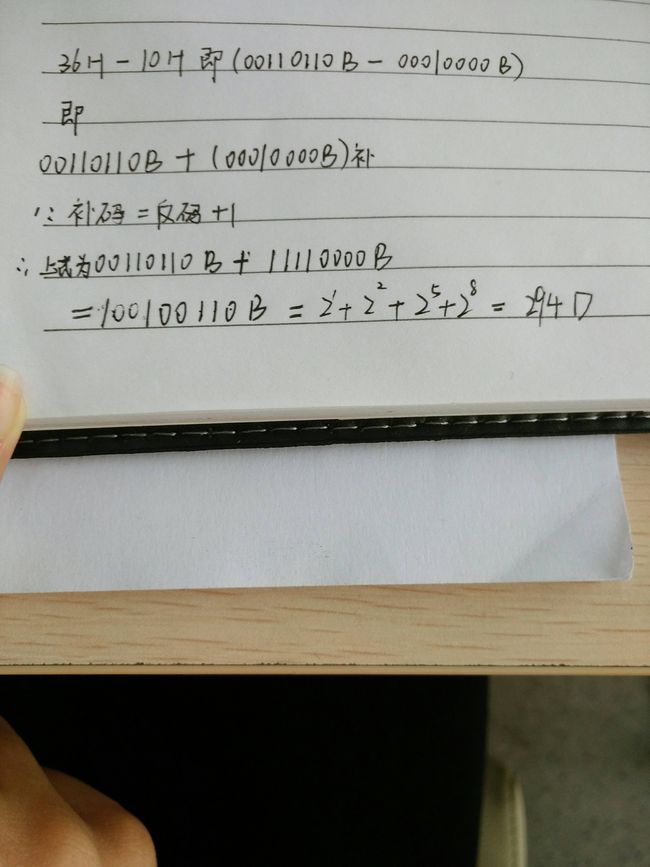 36H - 10H 即 (00110110B - 00010000B)
即
00110110B + (00010000B)补
∵ 补码 = 反码 + 1
∴ 上式为 00110110B + 11110000B
= 100100110B = 2¹ + 2² + 2⁵ + 2⁸ = 294D